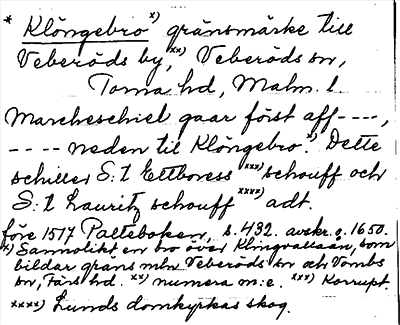 * Klöngebro x) gränsmärke till
Veberöds by, xx) Veberöds sn,
Torna hd, Malm. l.
Marcheschiel gaar först aff ----,
---- neden til Klöngebro. x) Dette
schiller S:t Ettboress xxx) schouff och
S:t Lauritz schouff xxxx) adt.
före 1517 Palteboken, s. 432. avskr. o. 1650.
x) Sannolikt en bro över Klingvallaån, som
bildar gräns mln Veberöds sn och Vombs
sn, Färs hd. xx) numera o:n:e. xxx) Korrupt.
xxxx) Lunds domkyrkas skog.